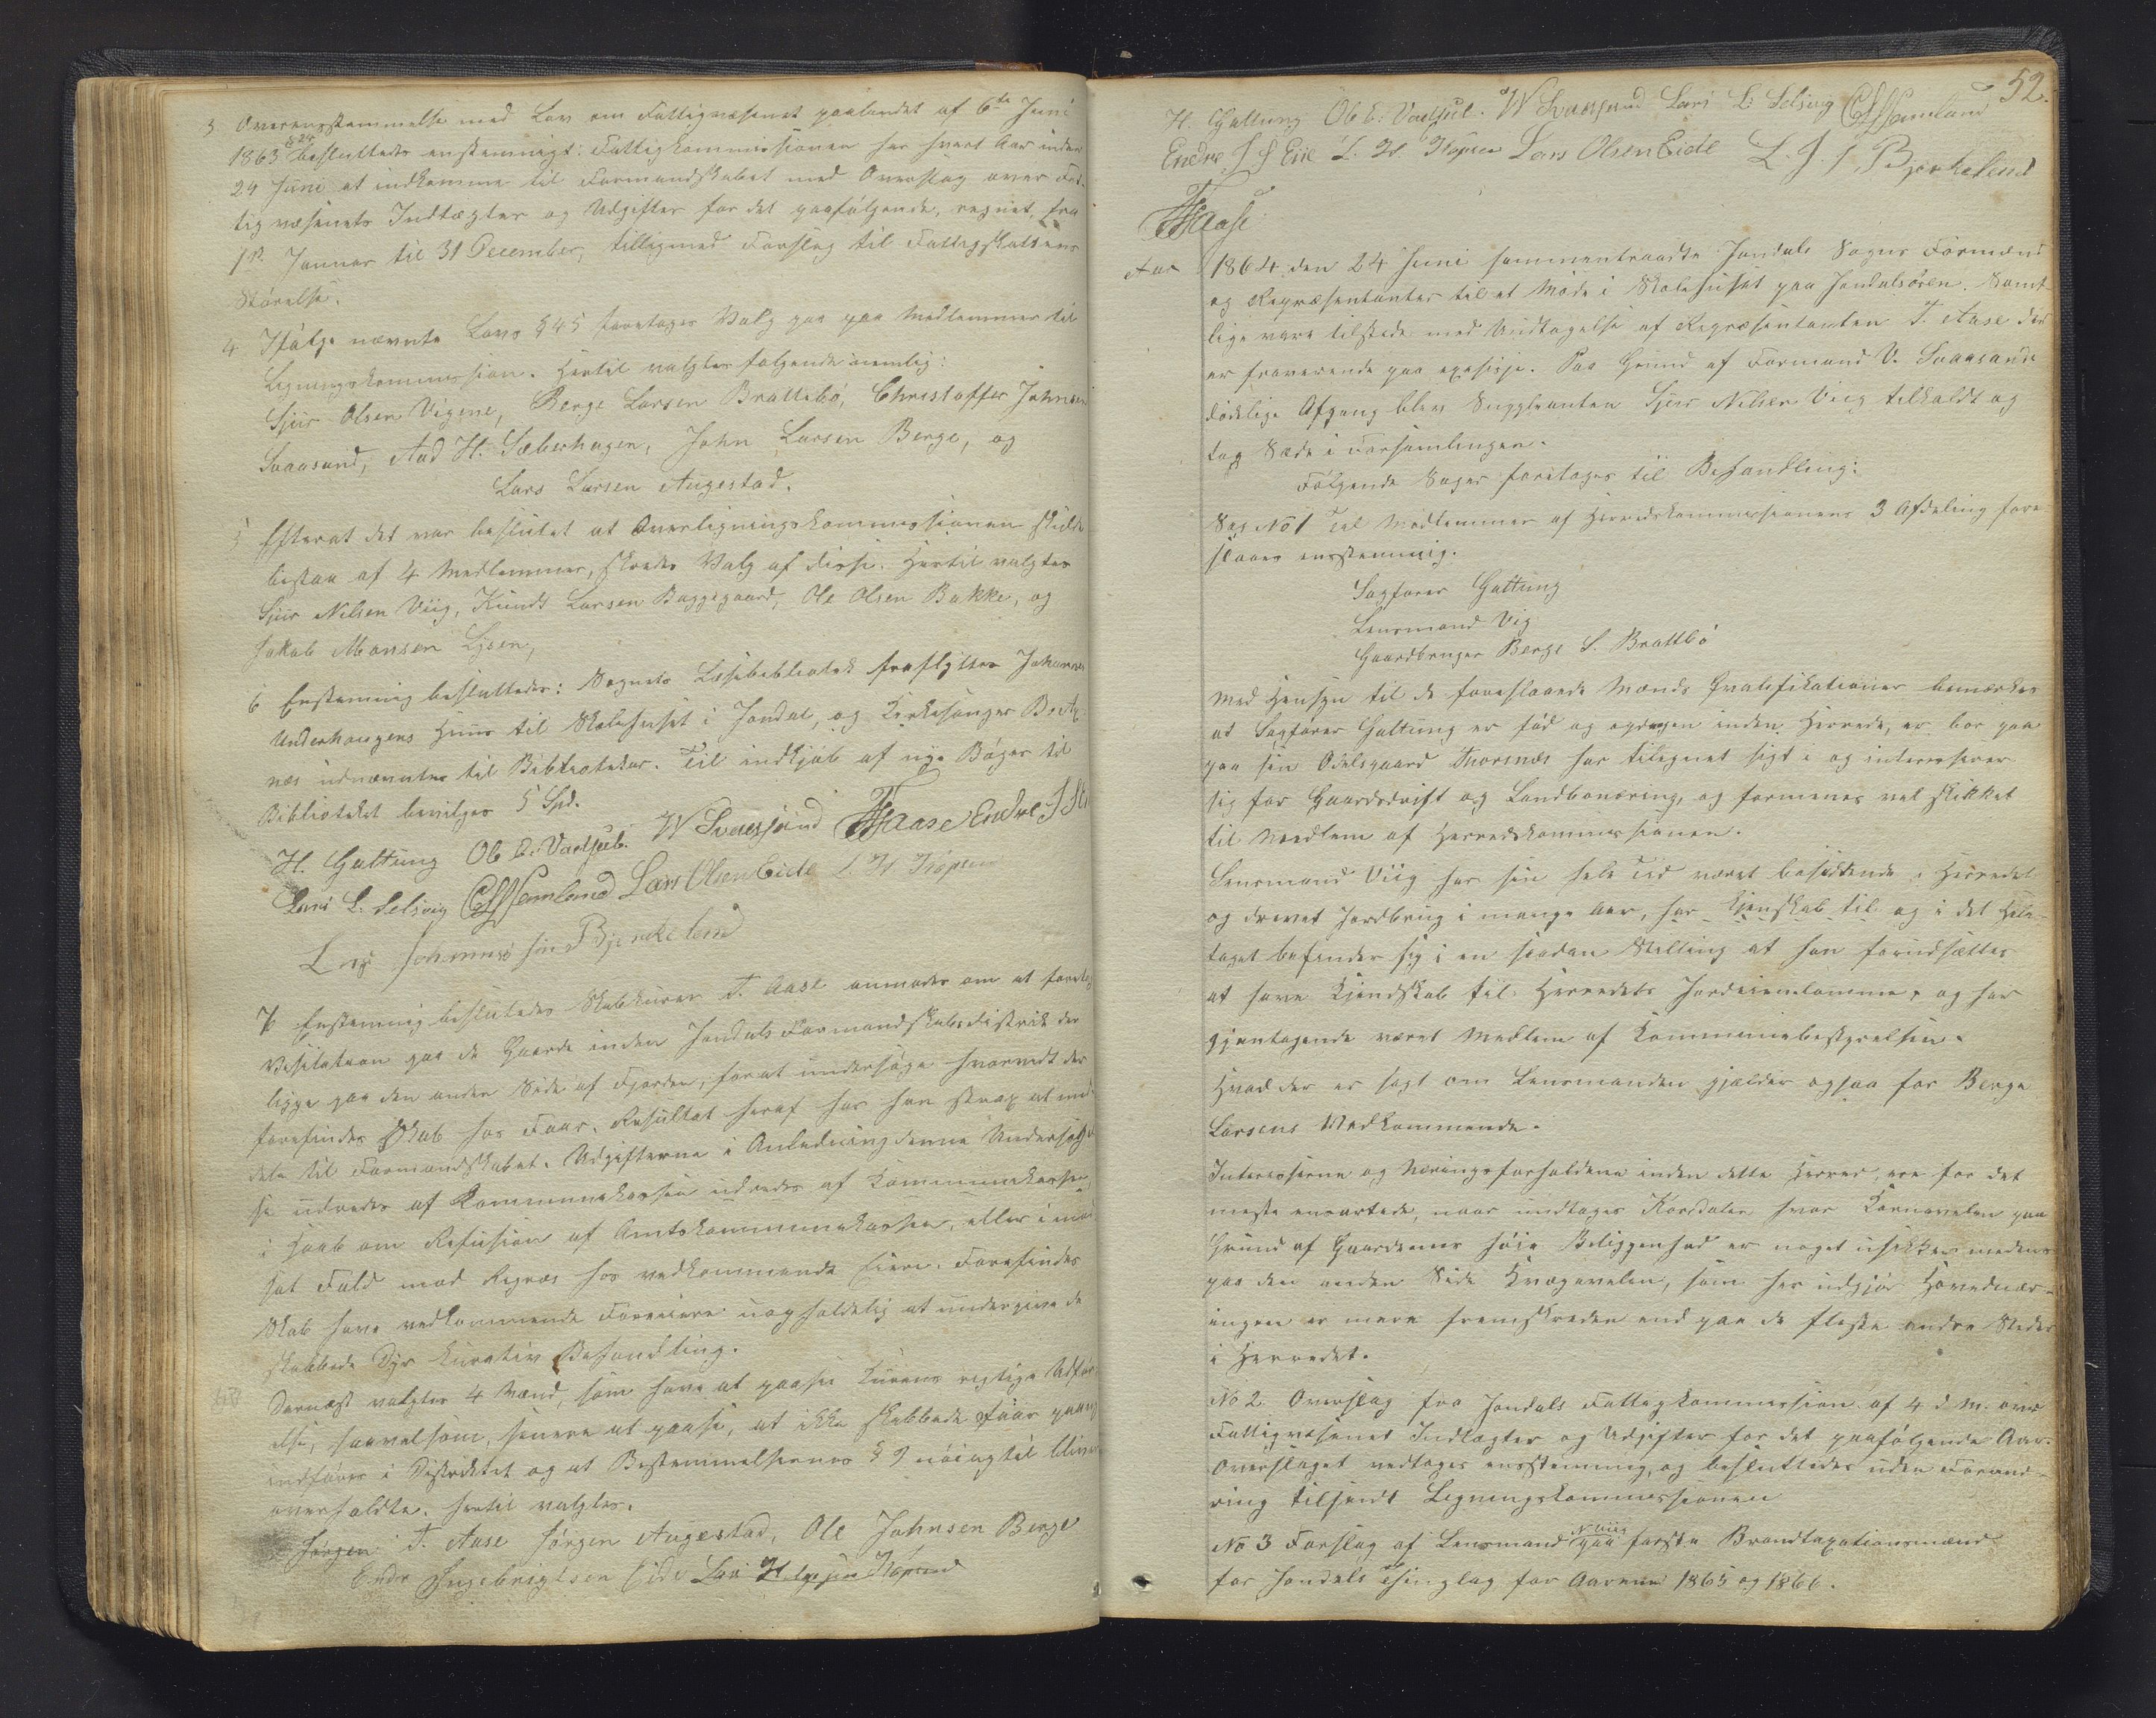 3 Overensstemmelse med Lov om Fattigvæsenet paalandet af 6te Juni
1863 § 24 besluttedes enstemmigt: Fattigkommissionen har hvert Aar inden
24 Juni at indkomme til Formandskabet med Overslag over Fat-
tigvæsenets Indtægter og Udgifter for det paafølgende, regnet fra
1ste Januar til 31 December, tilligemed Forslag til Fattigskattens
Størelse.
4 Ifølge nævnte Lovs § 45 foretoges Valg paa Medlemmer til
Ligningskommission. Hertil valgtes følgende nemlig:
Sjur Olsen Vigene, Berge Larsen Brattebö, Christoffer Johnsen
Svaasand, Aad H. Sæberhagen, John Larsen Berge, og
Lars Larsen Augestad.
5 Efterat det var besluttet at Overligningskommissionen skulde
bestaa af 4 Medlemmer, skredes Valg af disse. Hertil valgtes
Sjur Nilsen Viig, Knudt Larsen Buggegaard, Ole Olsen Bakke, og
Jakob Monsen Lysen,
6 Enstemmig besluttedes: Sognets Læsebibliotek fraflyttes Johannes
Underhougens Huus til Skolehuset i Jondal, og Kirkesanger
næs udnævntes til Bibliotekar. Til indkjøb af nye Bøger til
Biblioteket bevilges 5 Spd.
H. Gultung Ob E. Vadsub. W Svaasand T Aase Endre J S
Lars L. Selsvig Lars Olsen Eide L. H
Lars Johannes sin Bjerkeland
7 Enstemmig besluttedes Skabkurer T. Aase anmodes om at foretage
Visitation paa de Gaarde inden Jondals Formandskabsdistrikt der
ligge paa den anden Side af Fjorden, forat undersøge hvorvidt der
forefindes Skab hos Faar. Resultat heraf har han strax at med-
dele til Formandskabet. Udgifterne i Anledning denne Undersøgel-
se udredes af Kommunekassen udredes af Kommunekassen,
i Haab om Refusion af Amtskommunekassen, eller i mod-
sat Fald med Regres hos vedkommende Eiere. Forefindes
Skab have vedkommende Faareiere uopholdelig at undergive de
skabbede Dyr kurativ Behandling.
Dernæst valgtes 4 Mænd, som have at paase Kurens rigtige Udfør-
else, saavelsom, senere at paase, at ikke skabbede Faar paany
indføres i Distriktet og at Bestemmelsernes § 9 nøiagtil bliver
overholdte. Hertil valgtes.
Jørgen T. Aase Jørgen Augestad, Ole Johnsen Berge
Endr Ingebrigtsen Eide Lars Helgesen
52.
H. Gultung Ob E. Vadsub. W Svaasand Lars L. Selsvig
Endre J S Eie L. H. Lars Olsen Eide L. J. s Bjerkeland
T Aase
Aar 1864 den 24 Juni sammentraadte Jondals Sogns Formænd
og Repræsentanter til et Møde i Skolehuset paa Jondalsøren. Samt-
lige vare tilstede med Undtagelse af Repræsentanten T. Aase der
er fraværende paa. Paa Grund af Formand V. Svaasands
dødelige Afgang blev Suppleanten Sjur Nilsen Viig tilkaldt og
tog Sæde i Forsamlingen.
Følgende Sager foretoges til Behandling:
Sag No 1 Til Medlemmer af Herredskommissionens 3 Afdeling fore-
slaaes enstemmig.
Sagfører Gultung
Lensmand Vig
Gaardbruger Berge L. Brattbö
Med Hensyn til de foreslaaede Mænds Qvalifikationer bemærkes
at Sagfører Gultung er fød og opdragen inden Herredet, er bor paa
paa sin Odelsgaard Thorsnæs har tilegnet sigt i og interesserer
sig for Gaardsdrift og Landbonæring, og formenes vel skikket
til Medlem af Herredskommissionen.
Lensmand Viig har sin hele Tid været bosiddende i Herredet
og drevet Jordbrug i mange Aar, har Kjenskab til og i det Hele-
taget befinder sig i en saadan Stilling at han forudsættes
at have Kjendskab til Herredets Jordeiendomme, og har
gjentagende været Medlem af Kommunebestyrelsen.
Hvad der er sagt om Lensmanden gjælder ogsaa for Berge
Larsens Vedkommende.
Interesserne og Næringsforholdene inden dette Herred, ere for det
meste ensartede, naar undtages Korsdalen hvor Kornavelen paa
Grund af Gaardenes høie Beliggenhed er noget usikker medens
paa den anden Side Kvægavelen, som her udgjør Hovednær-
ingen er mere fremskreden end paa de fleste andre Steder
i Herredet.
No 2. Overslag fra Jondals Fattigkommission af 4 d. M. over
Fattigvæsenet Indtægter og Udgifter for det paafølgende Aar.
Overslaget vedtoges ensstemmig, og besluttedes uden Forand-
ring tilsendt Ligningskommissionen
No 3 Forslag af Lensmand N Viig paa første Brandtaxationsmænd
for Jondals Thinglag for Aarene 1865 og 1866.